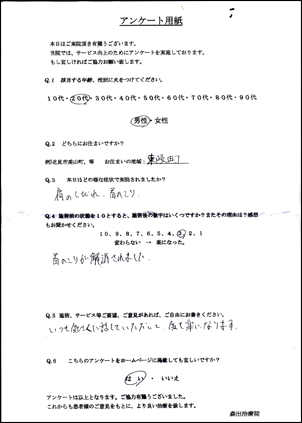 アンケート用紙
本日はご来院頂き有難うございます。
当院では、サービス向上のためにアンケートを実施しております。
もし宜しければご協力お願い致します。
Q.1 該当する年齢、性別に丸をつけてください。
10代・20代・30代・40代・50代・60代・70代・80代・90代
男性・女性
Q.2 どちらにお住まいですか?
例)北見市美山町、等 お住まいの地域:東陵町
Q.3 本日はどの様な症状で来院されましたか?
肩のしびれ、首のこり
Q.4 施術前の状態を10とすると、施術後の数字はいくつですか?またその理由は?感想
もお聞かせください。
10、9、8、7、6、5、4、3、2、1
変わらない → 楽になった。
首のこりが解消されました。
Q.5 施術、サービス等ご要望、ご意見があれば、ご自由にお書きください。
いつも気さくに話していただいて、気も楽になります。
Q.6 こちらのアンケートをホームページに掲載しても宜しいですか?
はい・いいえ
アンケートは以上となります。ご協力有難うございました。
これからも患者様のご意見をもとに、より良い治療を致します。
森出治療院